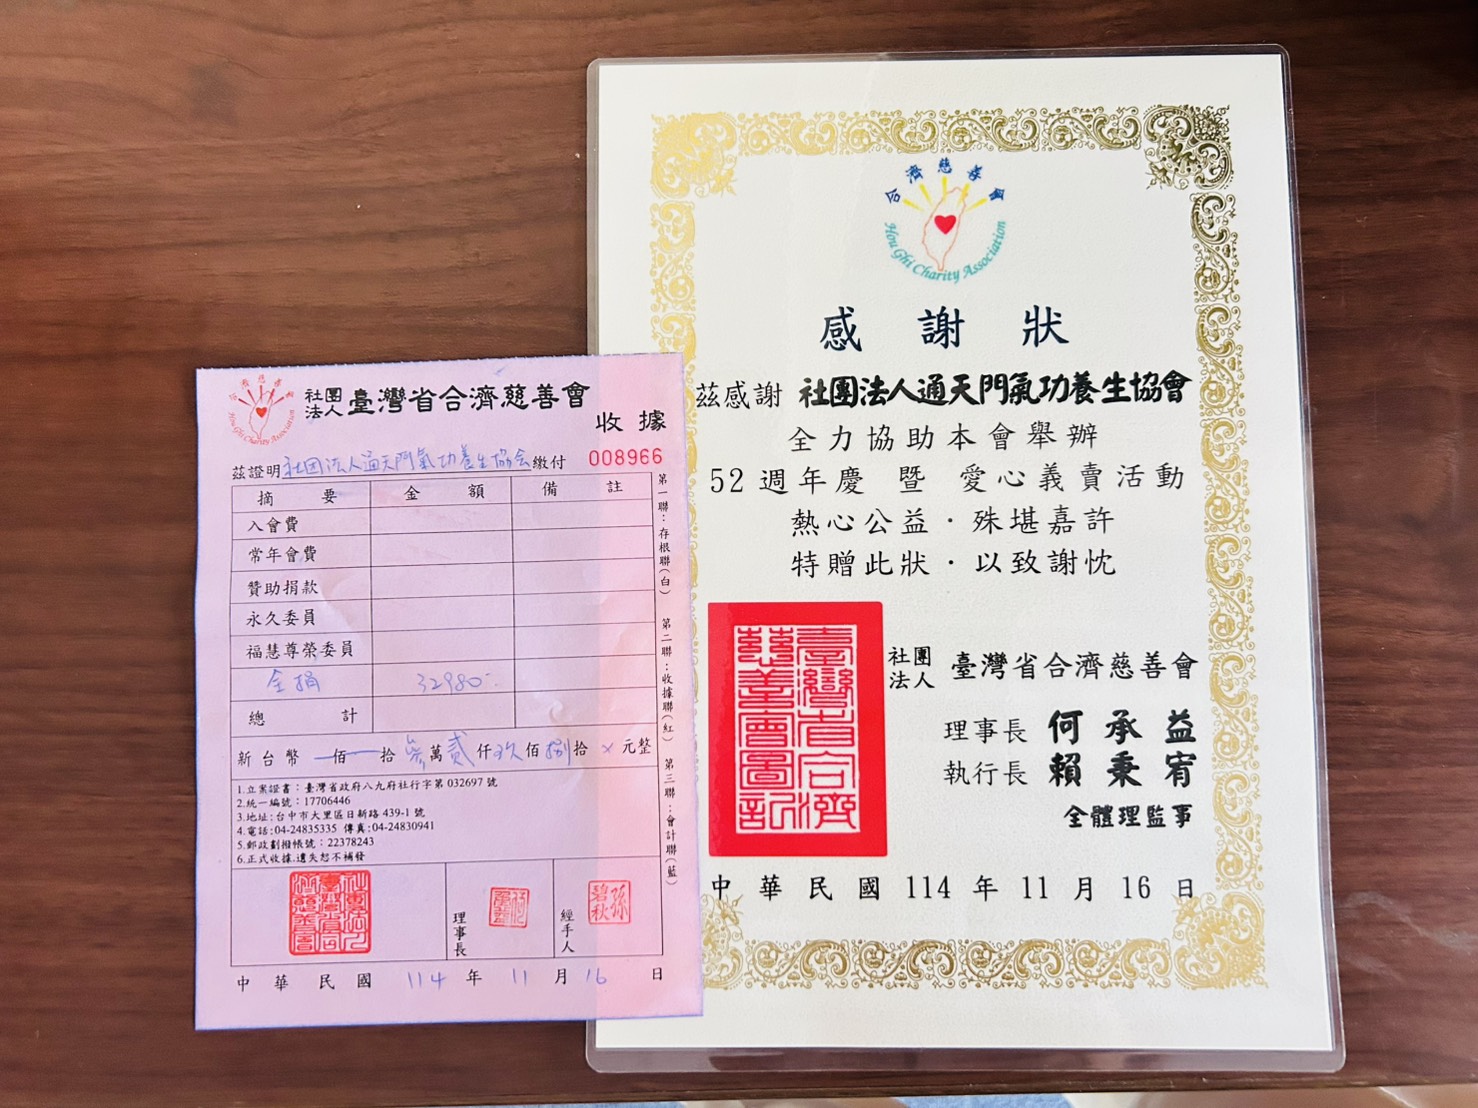 合濟慈善會
Hou Ghi Charity Association
社團法人臺灣省合濟慈善會
收據
茲證明社团法人通天門氣功養生協会繳付 008966
摘要 金額 備註
入會費
常年會費
贊助捐款
永久委員
福慧尊榮委員
全捐 32980-
總計
新台幣 佰 拾 叁萬貳仟玖佰捌拾 × 元整
1.立案證書：臺灣省政府八九府社行字第032697號
2.統一編號：17706446
3.地址:台中市大里區日新路439-1號
4.電話:04-24835335 傳真:04-24830941
5.郵政劃撥帳號：22378243
6.正式收據.遺失恕不補發
理事長
經手人
孫碧秋
中華民國 114 年 11 月 16 日
第一聯：存根聯(白) 第二聯：收據聯(紅) 第三聯：會計聯(藍)
合濟慈善會
Hou Ghi Charity Association
感謝狀
茲感謝 社團法人通天門氣功養生協會
全力協助本會舉辦
52週年慶 暨 愛心義賣活動
熱心公益．殊堪嘉許
特贈此狀．以致謝忱
臺灣省合濟慈善會圖記
社團法人 臺灣省合濟慈善會
理事長 何承益
執行長 賴秉宥
全體理監事
中華民國 114 年 11 月 16 日